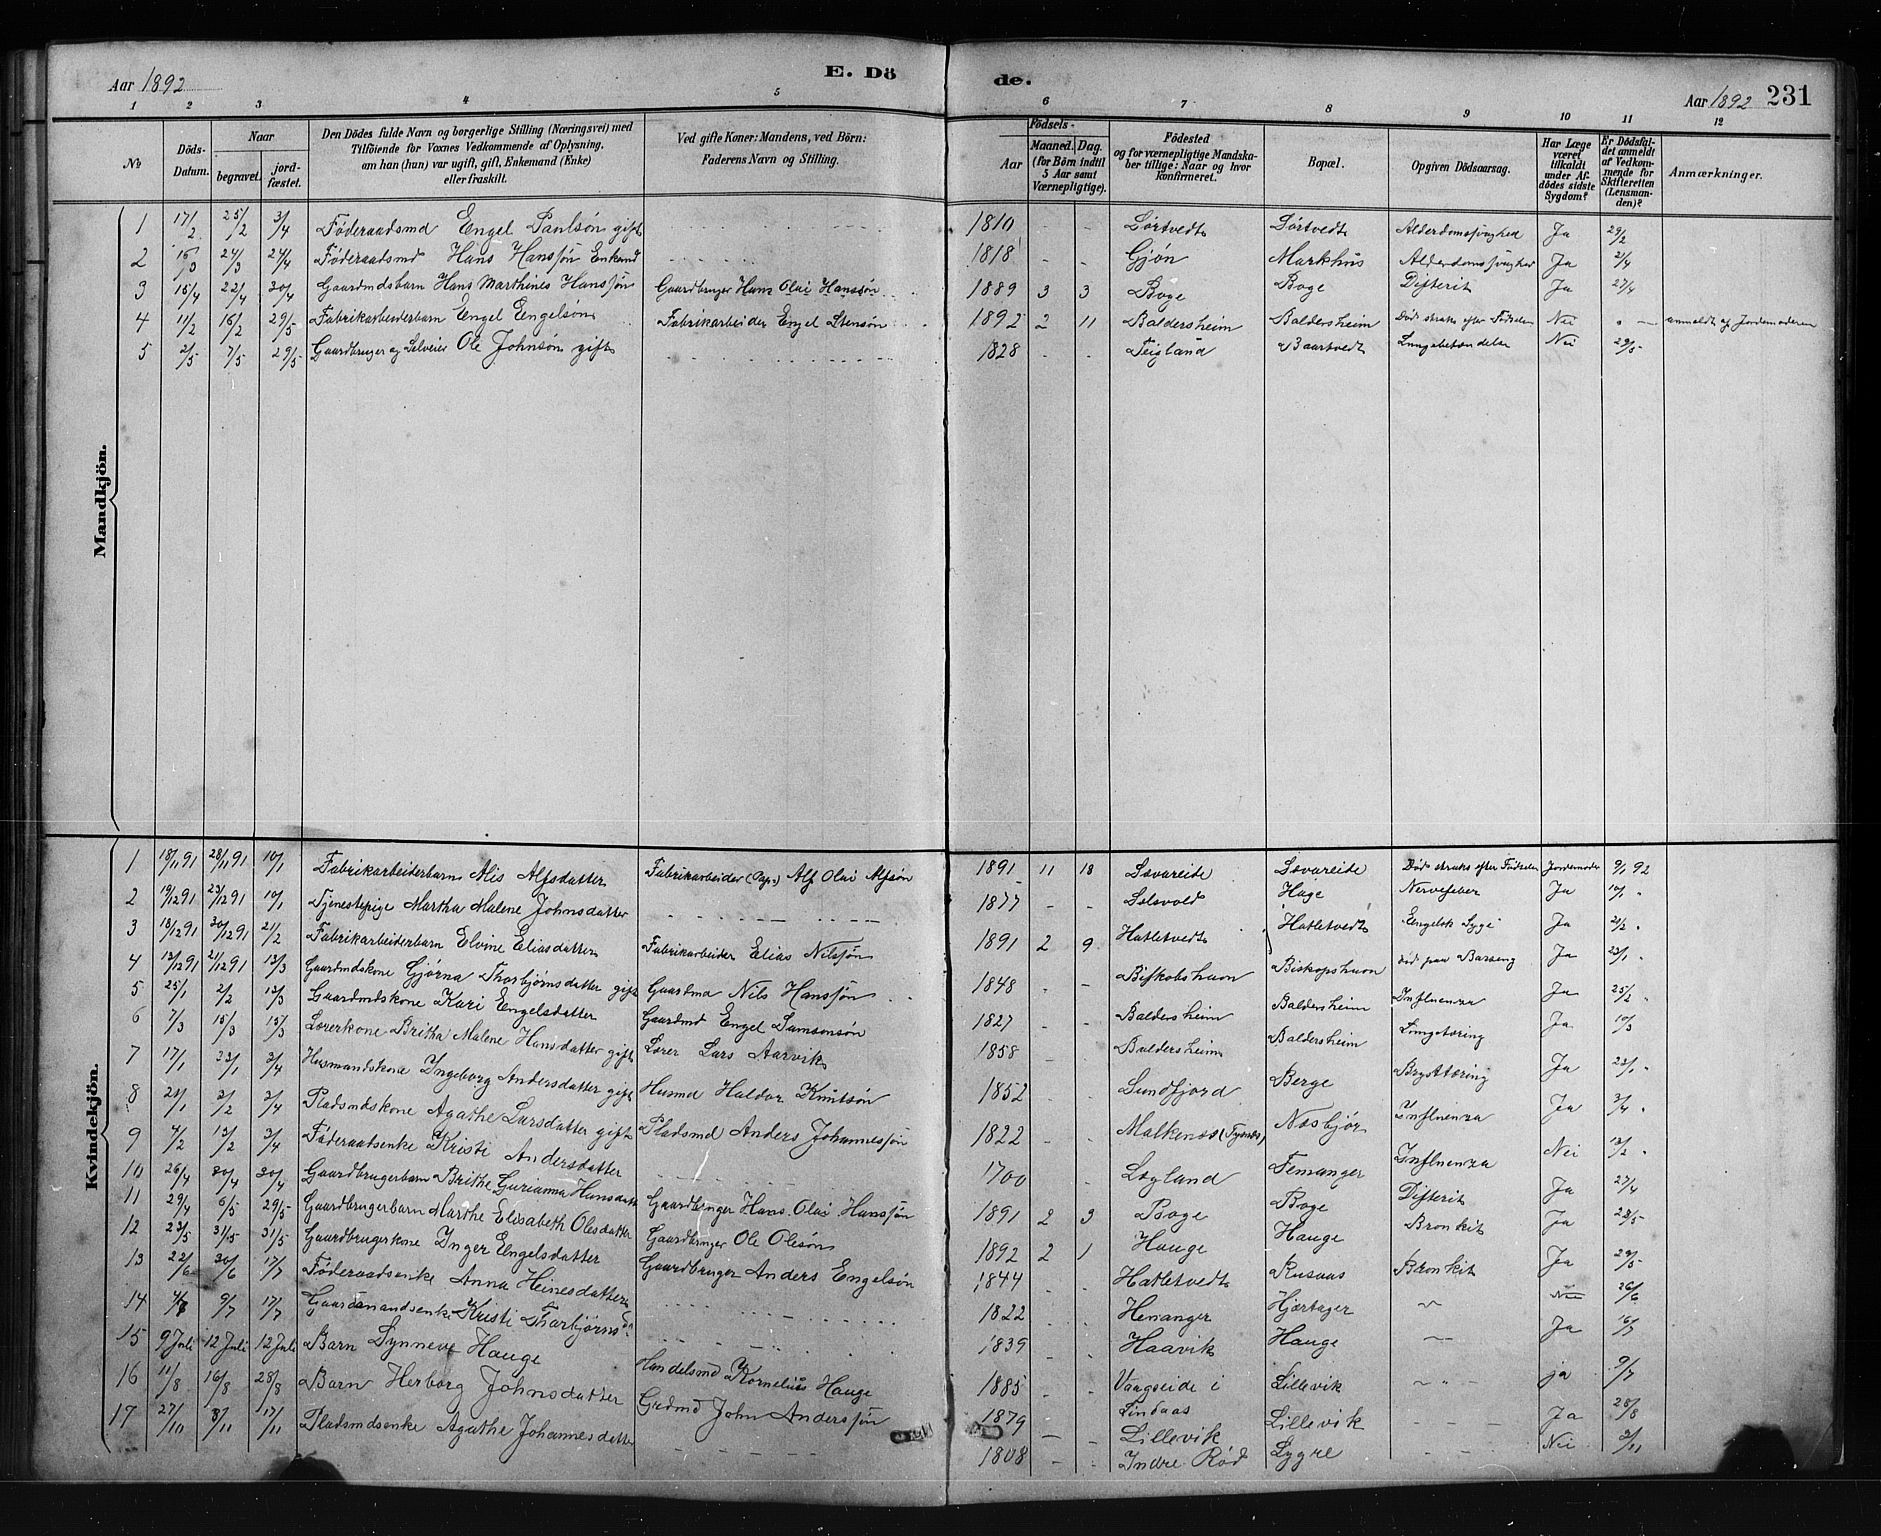 Aar 1892 E. Dö de. Aar 1892 231
1 2 3 4 5 6 7 8 9 10 11 12
No
Döds-Datum.
Naar
begravet.
jord-fæstet.
Den Dödes fulde Navn og borgerlige Stilling (Næringsvei) med
Tilföiende for Voxnes Vedkommende af Oplysning,
om han (hun) var ugift, gift, Enkemand (Enke)
eller fraskilt.
Ved gifte Koner: Mandens, ved Börn:
Faderens Navn og Stilling.
Födsels-
Aar
Maaned. Dag.
(for Börn indtil
5 Aar samt
Værnepligtige).
Födested
og for værnepligtige Mandska-
ber tillige: Naar og hvor
konfirmeret.
Bopæl.
Opgiven Dödsaarsag.
Har Læge
været
tilkaldt
under Af-
dödes sidste
Sygdom?
Er Dödsfal-
det anmeldt
af Vedkom-
mende for
Skifteretten
(Lensman-
den)?
Anmærkninger.
Mandkjön.
1 17/2 25/2 3/4 Føderaadsmd Engel Paulsøn gift 1810 - - Sørtvedt Sørtvedt Alderdomssvaghed Ja 29/2
2 16/3 24/3 24/4 Føderaadsmd Hans Hanssøn Enkemd 1818 - - Gjøn Markhus Alderdomssvaghed Ja 2/4
3 15/4 22/4 30/4 Gaardmdsbarn Hans Marthines Hanssøn Gaardbruger Hans Olai Hanssøn 1889 3 3 Boge Boge Difterit Ja 27/4
4 11/2 16/2 29/5 Fabrikarbeiderbarn Engel Engelsøn Fabrikarbeider Engel Stensøn 1892 2 11 Baldersheim Baldersheim Død straks efter Fødselen Nei " - anmeldt af Jordemoderen
5 2/5 7/5 29/5 Gaardbruger og Selveier Ole Johnsøn gift 1828 - - Teigland Baartvedt Lungebetændelse Nei 29/5
Kvindekjön.
1 18/11 91 28/11 91 10/1 Fabrikarbeiderbarn Alis Alfsdatter Fabrikarbeider Alf Olai 1891 11 18 Sævareide Sævareide Død straks efter Fødselen Jordemoder 9/1 92
2 19/12 91 23/12 91 10/1 Tjenestepige Martha Malene Johnsdatter 1877 - - Selsvold Hage Nervefeber Ja 10/1 "
3 18/12 91 30/12 91 21/2 Fabrikarbeiderbarn Elvine Eliasdatter Fabrikarbeider Elias Nilssøn 1891 2 9 Hatletvedt Hatletvedt Engelsk Syge Ja 21/2 "
4 13/12 91 21/12 91 13/3 Gaardmdskone Gjørna Thorbjørnsdatter gift Gaardmd Nils Hanssøn 1848 - - Biskobshavn Biskopshavn død paa Barseng Ja 23/1 "
5 25/1 2/2 13/3 Gaardmdskone Kari Engelsdatter Gaardmd Engel Samsonsøn 1827 - - Baldersheim Baldersheim Influenza Ja 25/2 "
6 7/3 15/3 15/3 Lærerkone Britha Malene Hansdatter gift Lærer Lars Aarvik 1858 - - Baldersheim Baldersheim Lungetæring Ja 10/3
7 17/1 23/1 3/4 Husmandskone Ingeborg Andersdatter gift Husmd Haldor Knutsøn 1852 - - Sundfjord Berge Brysttæring Ja 23/1 "
8 21/1 2/2 3/4 Pladsmdskone Agathe Larsdatter gift Pladsmd Anders Johannessøn 1822 - - Malkenæs (Tysnæs) Næsbjør Influenza Ja 3/4 "
9 4/2 13/2 3/4 Føderaadsenke Kristi Andersdatter 1700 - Lægland Femanger Influenza Nei 13/2 "
10 26/4 30/4 30/4 Gaardbrugerbarn Brithe Gurianna Hansdatt Gaardbruger Hans Olai Hanssøn 1891 2 3 Boge Boge Difterit Ja 27/4
11 29/4 6/5 29/5 Gaardbrugerbarn Marthe Elisabeth Olesdatter Gaardbruger Ole Olesøn 1892 2 1 Hauge Hauge Bronkit Ja 23/5
12 23/5 31/5 31/5 Gaardbrugerkone Inger Engelsdatter Gaardbruger Anders Engelsøn 1844 - - Hatletvedt Rusaas Bronkit Ja 29/5
13 22/6 30/6 17/7 Føderaadsenke Anna Heinesdatter 1822 - - Henanger Hjertager " Nei 26/6
14 4/7 9/7 17/7 Gaardmandsenke Kristi Thorbjørnsd 1839 - - Haavik Hauge - Ja 16/7
15 9 Juli 12 Juli 12 Juli Barn Synneve Hauge Handelsmd Kornelius Hauge 1885 - - Vaagseide i Lindaas Lillevik - " - ja 9/7
16 11/8 16/8 28/8 Barn Herborg Johnsdatter Grdmd John Anderssøn 1879 - - Lillevik Lillevik - - - Ja 28/8
17 27/10 3/11 17/11 Pladsmdsenke Agathe Johannesdatter 1808 - - Indre Rød Lygre - - Nei 3/11